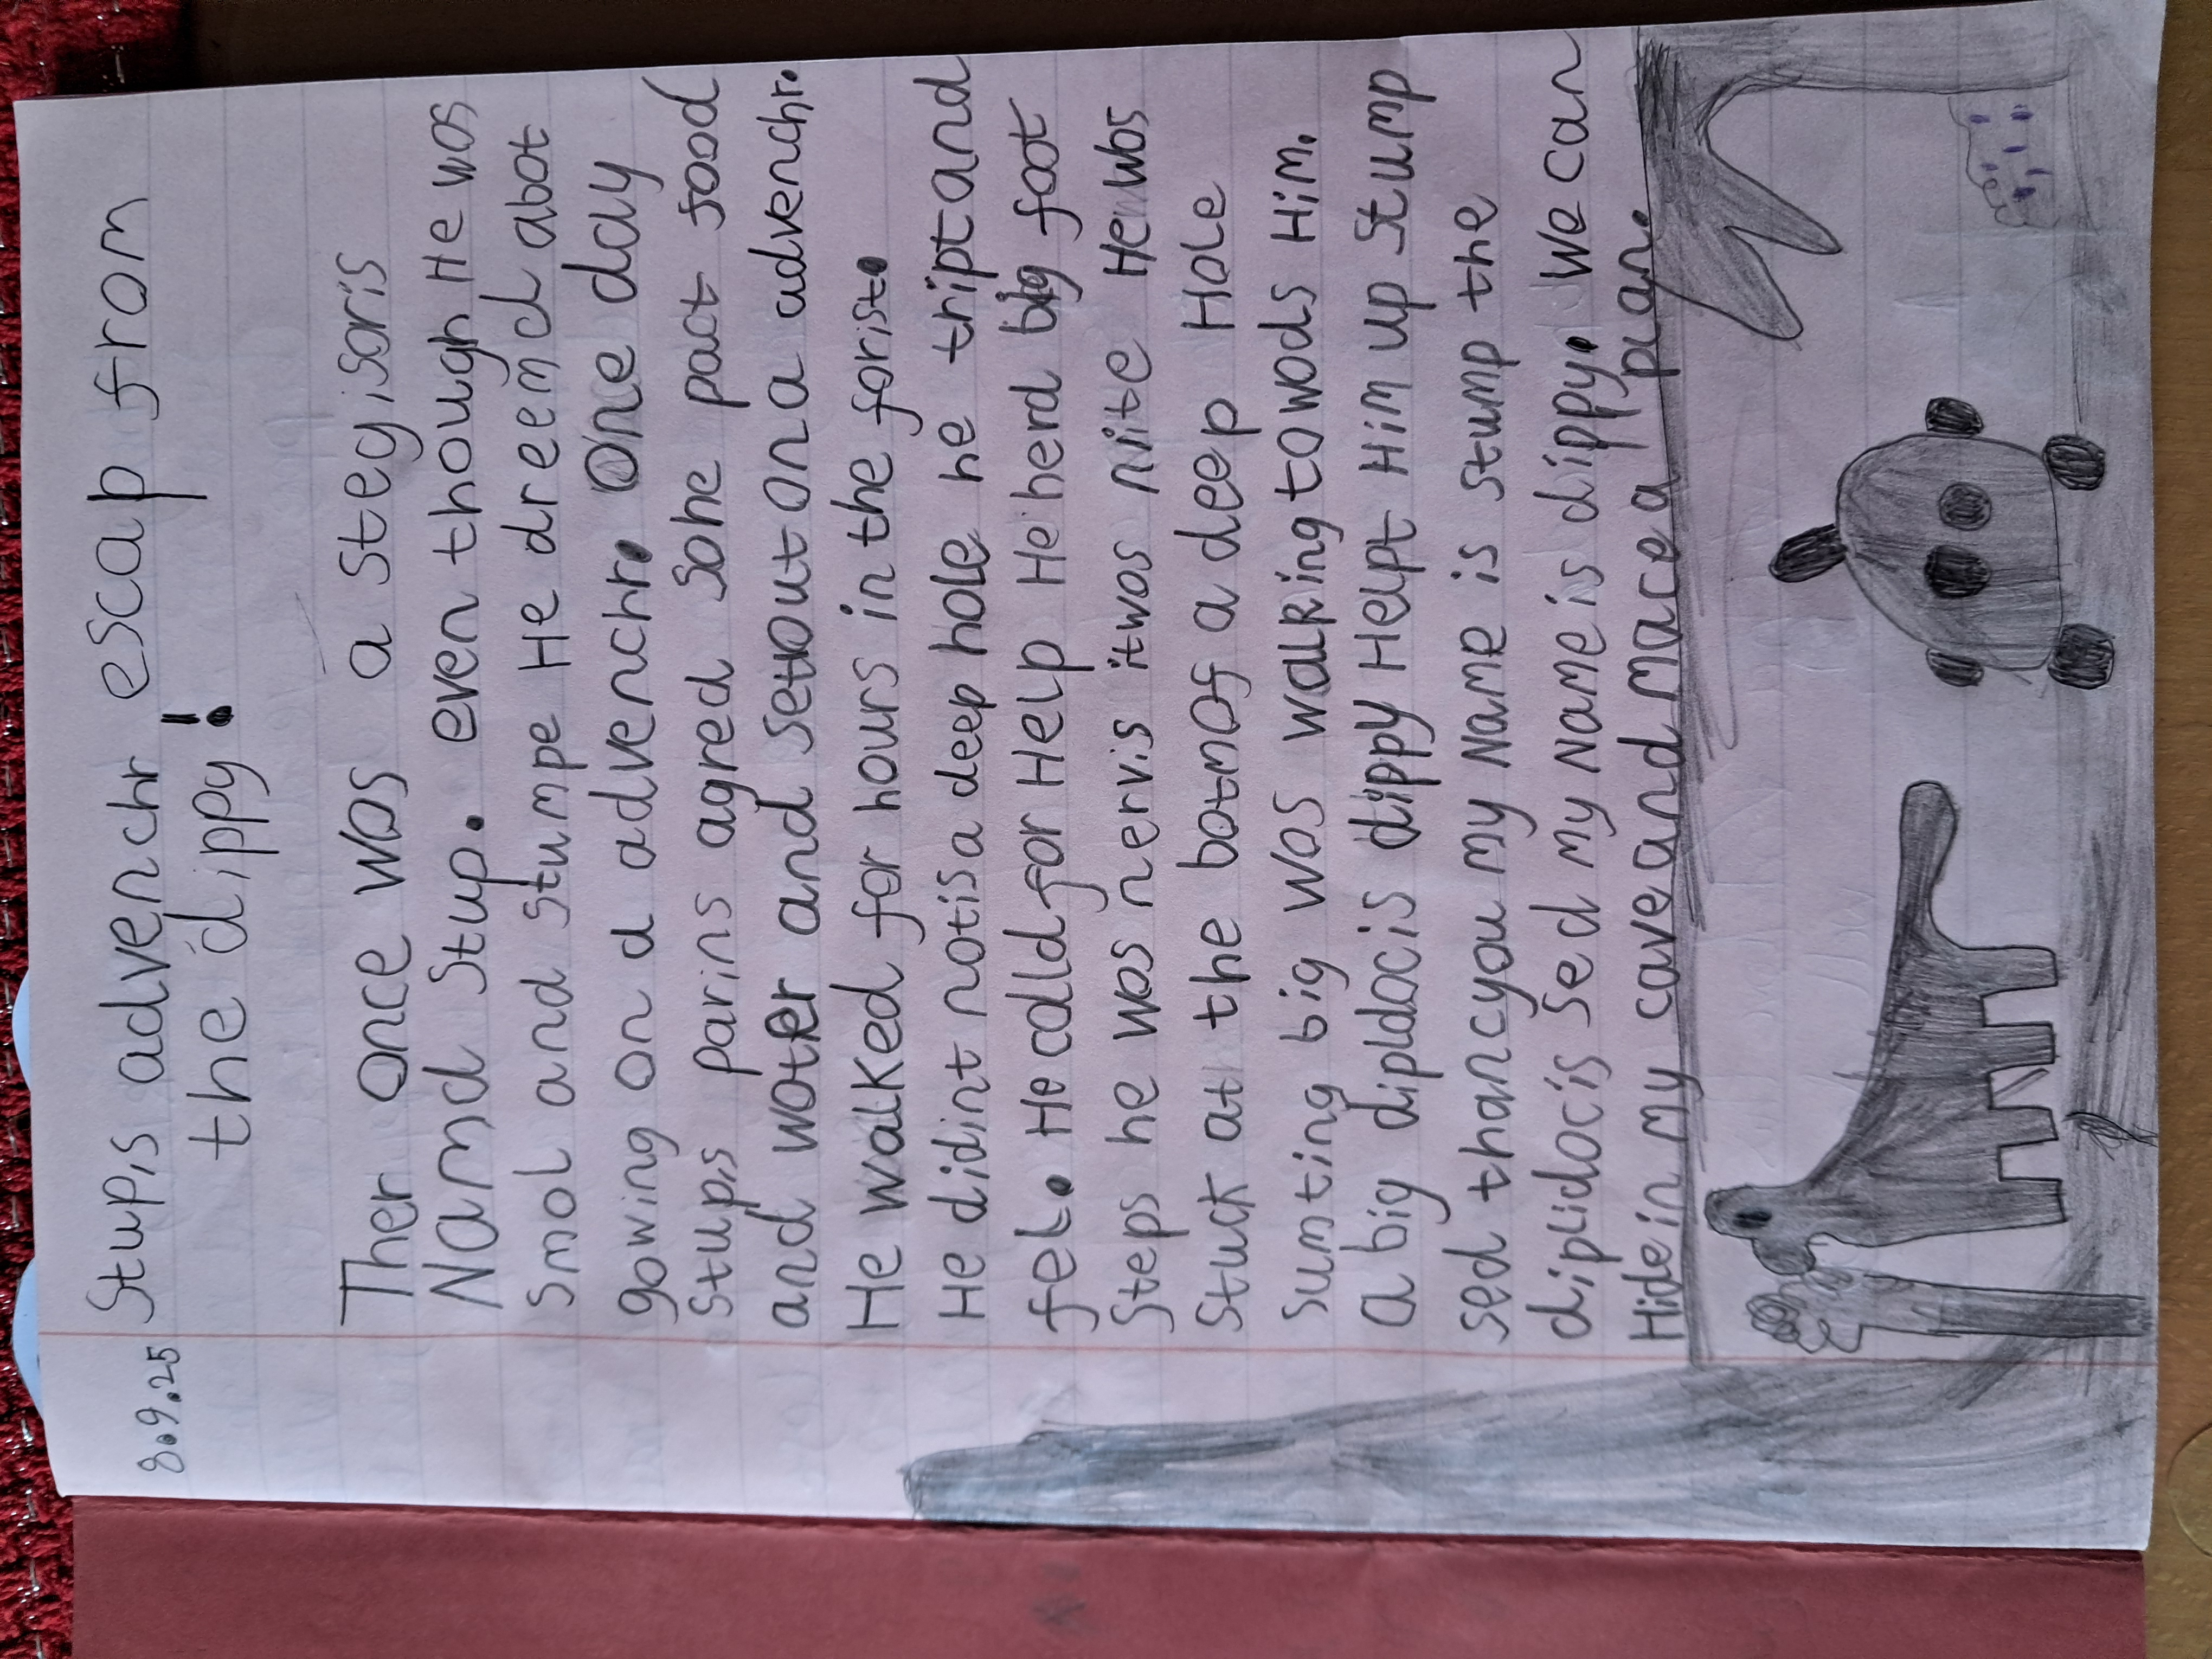 8.9.25 Stupis advenchr escap from
the dippy!
Ther once was a stegisoris
Namd Stup. even though He was
smol and stumpe He dreemd abot
gowing on a advenchr. One day
stups parins agred some pact food
and woter and setout on a advenchr.
He walked for hours in the forist.
He didint notis a deep hole he tript and
fel. He colld for Help He herd big foot
steps he was nervis it was nite He was
stuck at the botm of a deep Hole
sumting big was walking towods Him.
a big diplidocis dippy Helpt Him up stump
sed thancyou my Name is stump the
diplidocis sed my Name is dippy. We can
Hide in my cave and mace a plan.